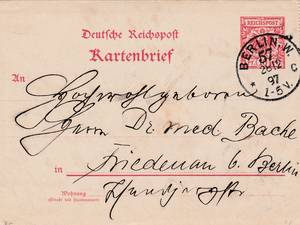 Deutsche Reichspost
Kartenbrief
REICHSPOST
BERLIN. W
57
C
97
* 1-5 V.
An
Hochwohlgeboren
Herrn Dr med Bache
in Friedenau b. Berlin
Wohnung
(Straße und Hausnummer)